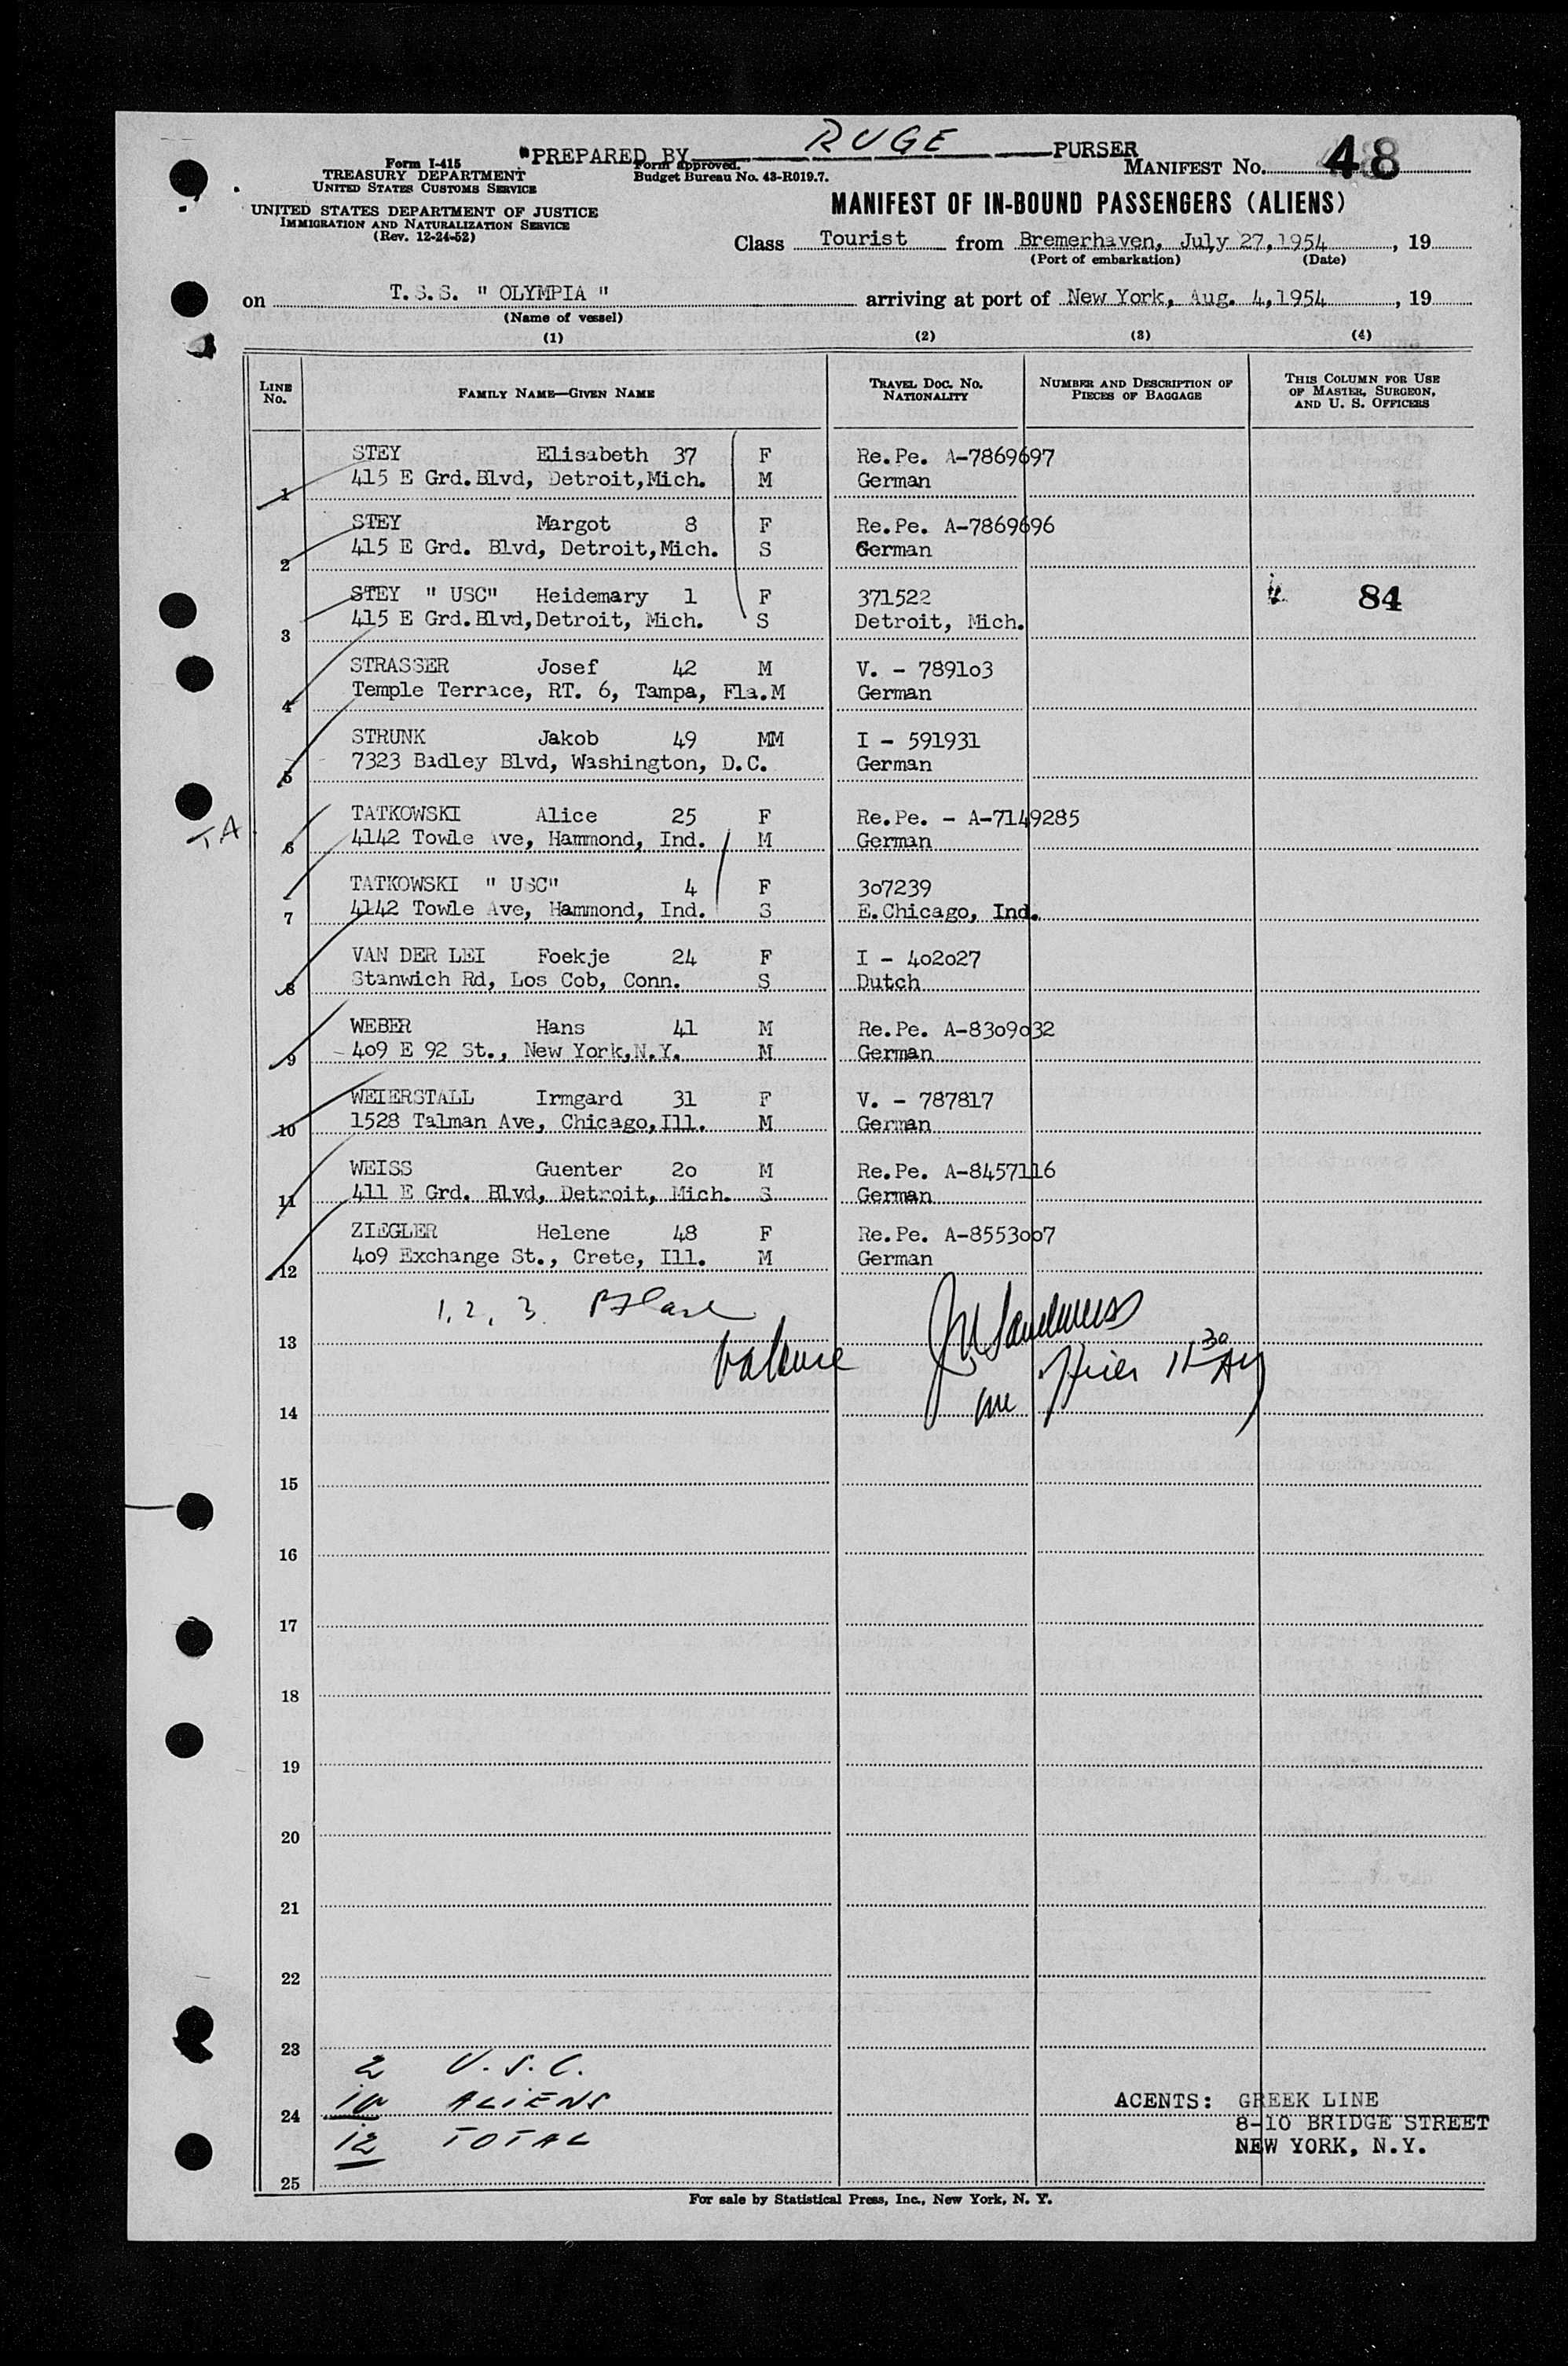 PREPARED BY RUGE PURSER
Form I-415
TREASURY DEPARTMENT
UNITED STATES CUSTOMS SERVICE
Form approved.
Budget Bureau No. 43-R019.7.
MANIFEST NO. 48
UNITED STATES DEPARTMENT OF JUSTICE
IMMIGRATION AND NATURALIZATION SERVICE
(Rev. 12-24-52)
MANIFEST OF IN-BOUND PASSENGERS (ALIENS)
Class Tourist from Bremerhaven, July 27,1954, 19
(Port of embarkation) (Date)
on T.S.S. " OLYMPIA " arriving at port of New York, Aug. 4,1954, 19
(Name of vessel)
(1) (2) (3) (4)
LINE NO. FAMILY NAME—GIVEN NAME TRAVEL DOC. NO. NATIONALITY NUMBER AND DESCRIPTION OF PIECES OF BAGGAGE THIS COLUMN FOR USE OF MASTER, SURGEON, AND U. S. OFFICERS
STEY Elisabeth 37 F Re.Pe. A-7869697
1 415 E Grd.Blvd, Detroit,Mich. M German
STEY Margot 8 F Re.Pe. A-7869696
2 415 E Grd. Blvd, Detroit,Mich. S German
STEY " USC" Heidemary 1 F 371522 84
3 415 E Grd.Blvd,Detroit, Mich. S Detroit, Mich.
STRASSER Josef 42 M V. - 7891o3
4 Temple Terrace, RT. 6, Tampa, Fla.M German
STRUNK Jakob 49 MM I - 591931
5 7323 Badley Blvd, Washington, D.C. German
TATKOWSKI Alice 25 F Re.Pe. - A-7149285
T A. 6 4142 Towle Ave, Hammond, Ind. M German
TATKOWSKI " USC" 4 F 3o7239
7 4142 Towle Ave, Hammond, Ind. S E.Chicago, Ind.
VAN DER LEI Foekje 24 F I - 4o2o27
8 Stanwich Rd, Los Cob, Conn. S Dutch
WEBER Hans 41 M Re.Pe. A-83o9o32
9 4o9 E 92 St., New York,N.Y. M German
WEIERSTALL Irmgard 31 F V. - 787817
10 1528 Talman Ave, Chicago,Ill. M German
WEISS Guenter 2o M Re.Pe. A-8457116
11 411 E Grd. Blvd, Detroit, Mich. S German
ZIEGLER Helene 48 F Re.Pe. A-8553oo7
12 4o9 Exchange St., Crete, Ill. M German
1, 2, 3
13 balance
14 Pier 11 30 AM
15
16
17
18
19
20
21
22
23
2 U.S.C.
24 10 ALIENS
12 TOTAL
ACENTS: GREEK LINE
8-10 BRIDGE STREET
NEW YORK, N.Y.
25
For sale by Statistical Press, Inc., New York, N. Y.